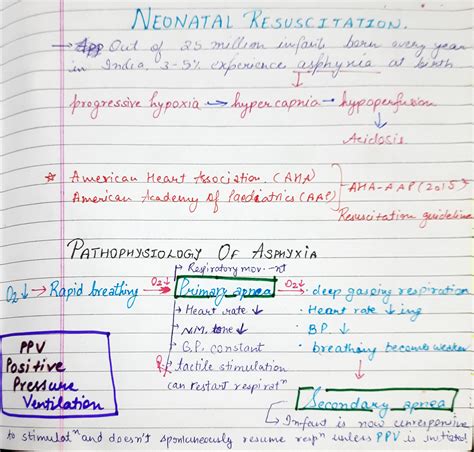 NEONATAL RESUSCITATION.
→ Out of 25 million infant born every year
in India, 3-5% experience asphyxia at birth
progressive hypoxia → hypercapnia → hypoperfusion
↓
Acidosis
☆ American Heart Association. (AHA)
American Academy of Paediatrics (AAP)
AHA-AAP (2015)
Resuscitation guideline
PATHOPHYSIOLOGY OF ASPHYXIA
→ Respiratory mov. -nt
O2↓ → Rapid breathing O2↓ → Primary apnea O2↓ → • deep gasping respiration
→ Heart rate ↓
• Heart rate ↓ing
→ N.M. tone ↓
• B.P. ↓
→ B.P. constant
• breathing become weaker
→ tactile stimulation
can restart respiratⁿ
PPV
Positive
Pressure
Ventilation
Secondary apnea
↳ Infant is now unresponsive
to stimulatⁿ and doesn't spontaneously resume respⁿ unless PPV is initiated